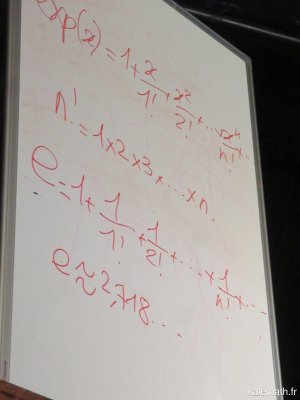 exp(x) = 1 + x/1! + x²/2! + ... + xⁿ/n! + ...
n! = 1 × 2 × 3 × ... × n.
e = 1 + 1/1! + 1/2! + ... + 1/n! + ...
e ≈ 2,718...
kalemath.fr